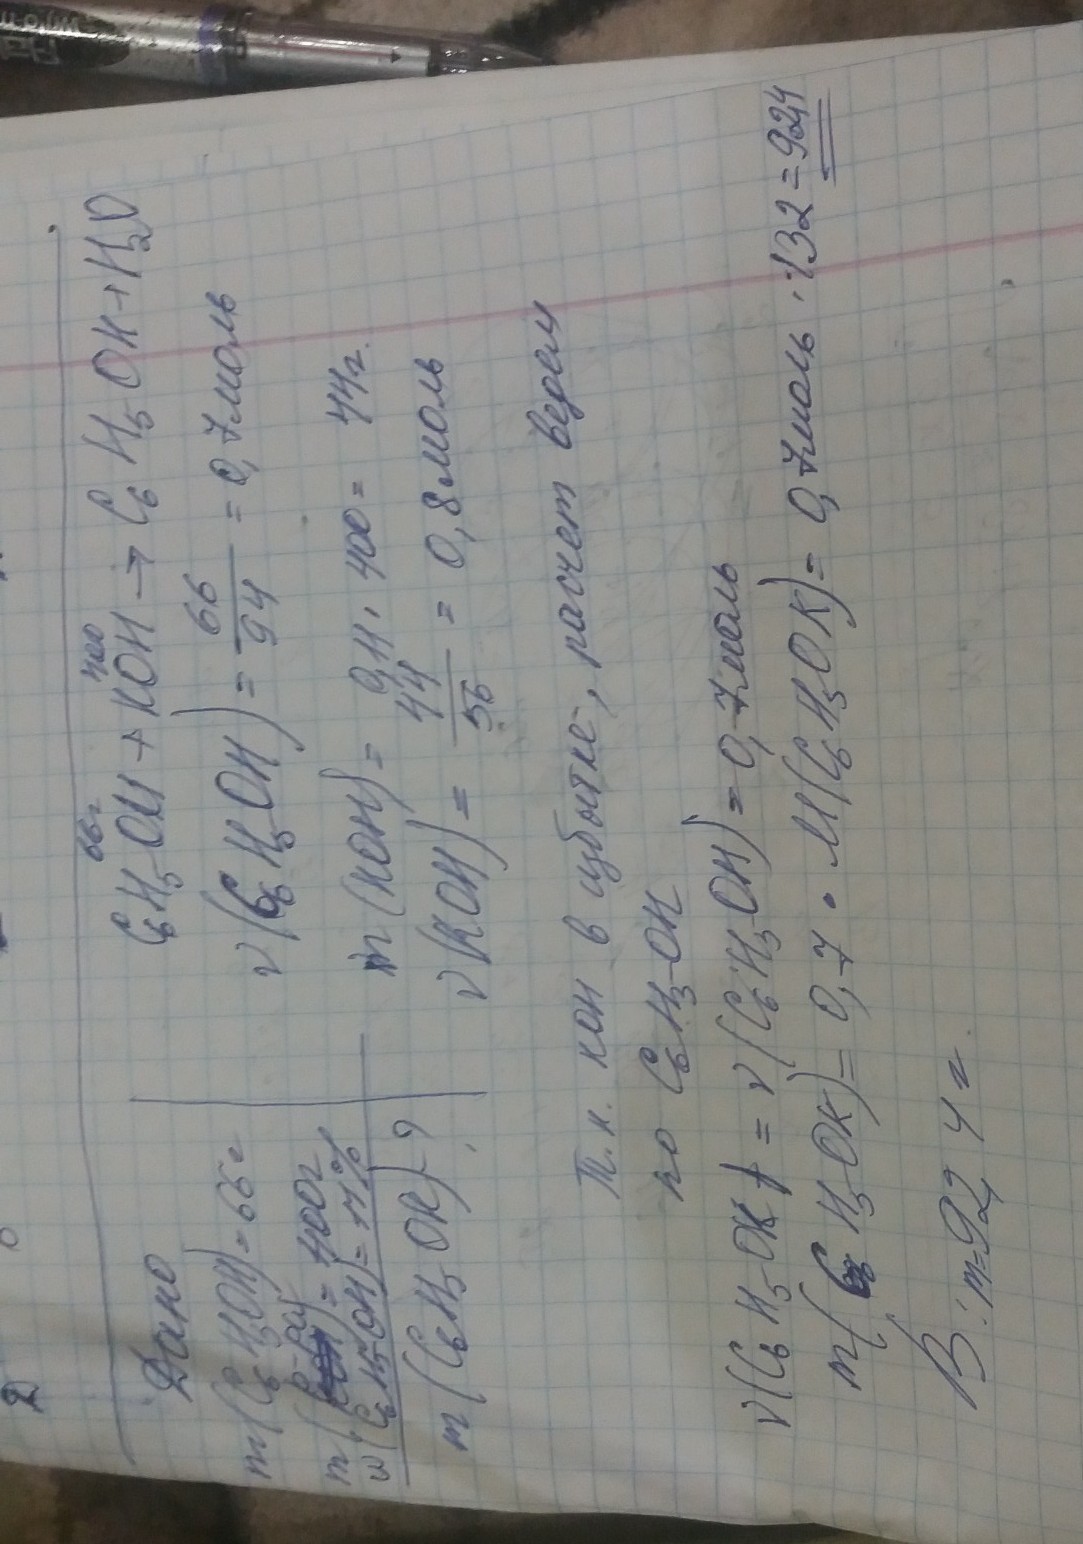 Дано
m(C₆H₅OH)=66г
m(р-ра)=400г
w(C₆H₅OH)=11%
m(C₆H₅OK)-?
66г 400
C₆H₅OH + KOH → C₆H₅OK + H₂O
ν(C₆H₅OH) = 66/94 = 0,7моль
m(KOH) = 0,11 · 400 = 44г.
ν(KOH) = 44/56 = 0,8моль
Т.к. KOH в избытке, расчет ведем
по C₆H₅OH
ν(C₆H₅OK) = ν(C₆H₅OH) = 0,7моль
m(C₆H₅OK) = 0,7 · M(C₆H₅OK) = 0,7моль · 132 = 92,4
В: m=92,4 г.